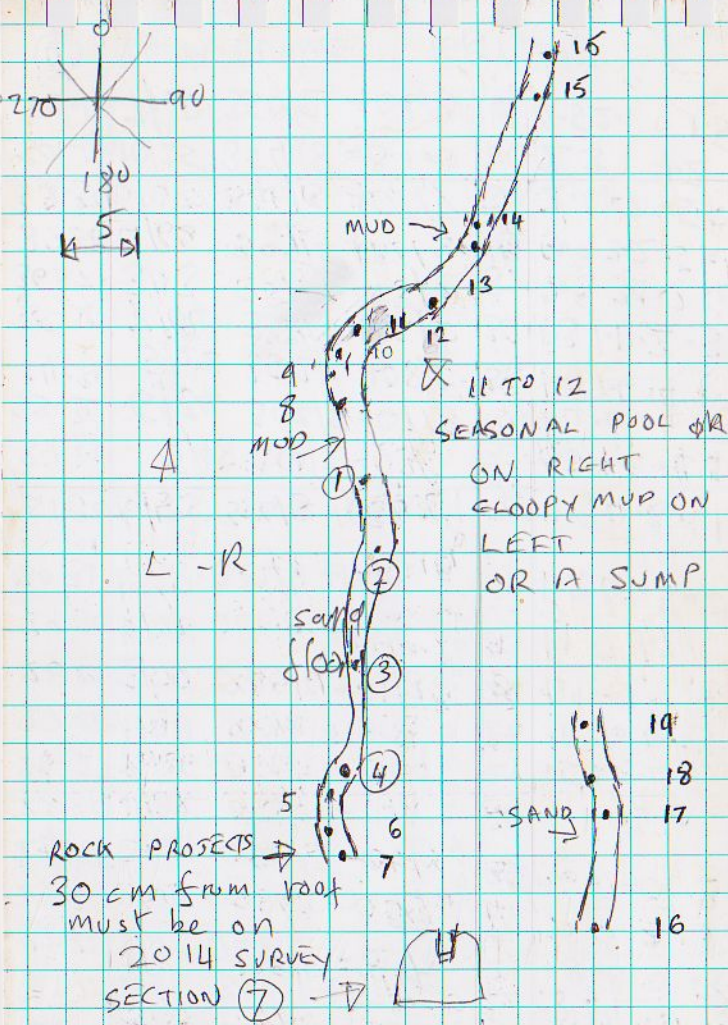 0
270
90
180
5
16
15
MUD
14
13
11
12
10
9
8
MUD
11 TO 12
SEASONAL POOL
ON RIGHT
GLOOPY MUD ON
LEFT
OR A SUMP
1
L - R
2
sand
floor
3
4
5
6
7
19
18
SAND
17
16
ROCK PROJECTS
30 cm from roof
must be on
2014 SURVEY
SECTION 7